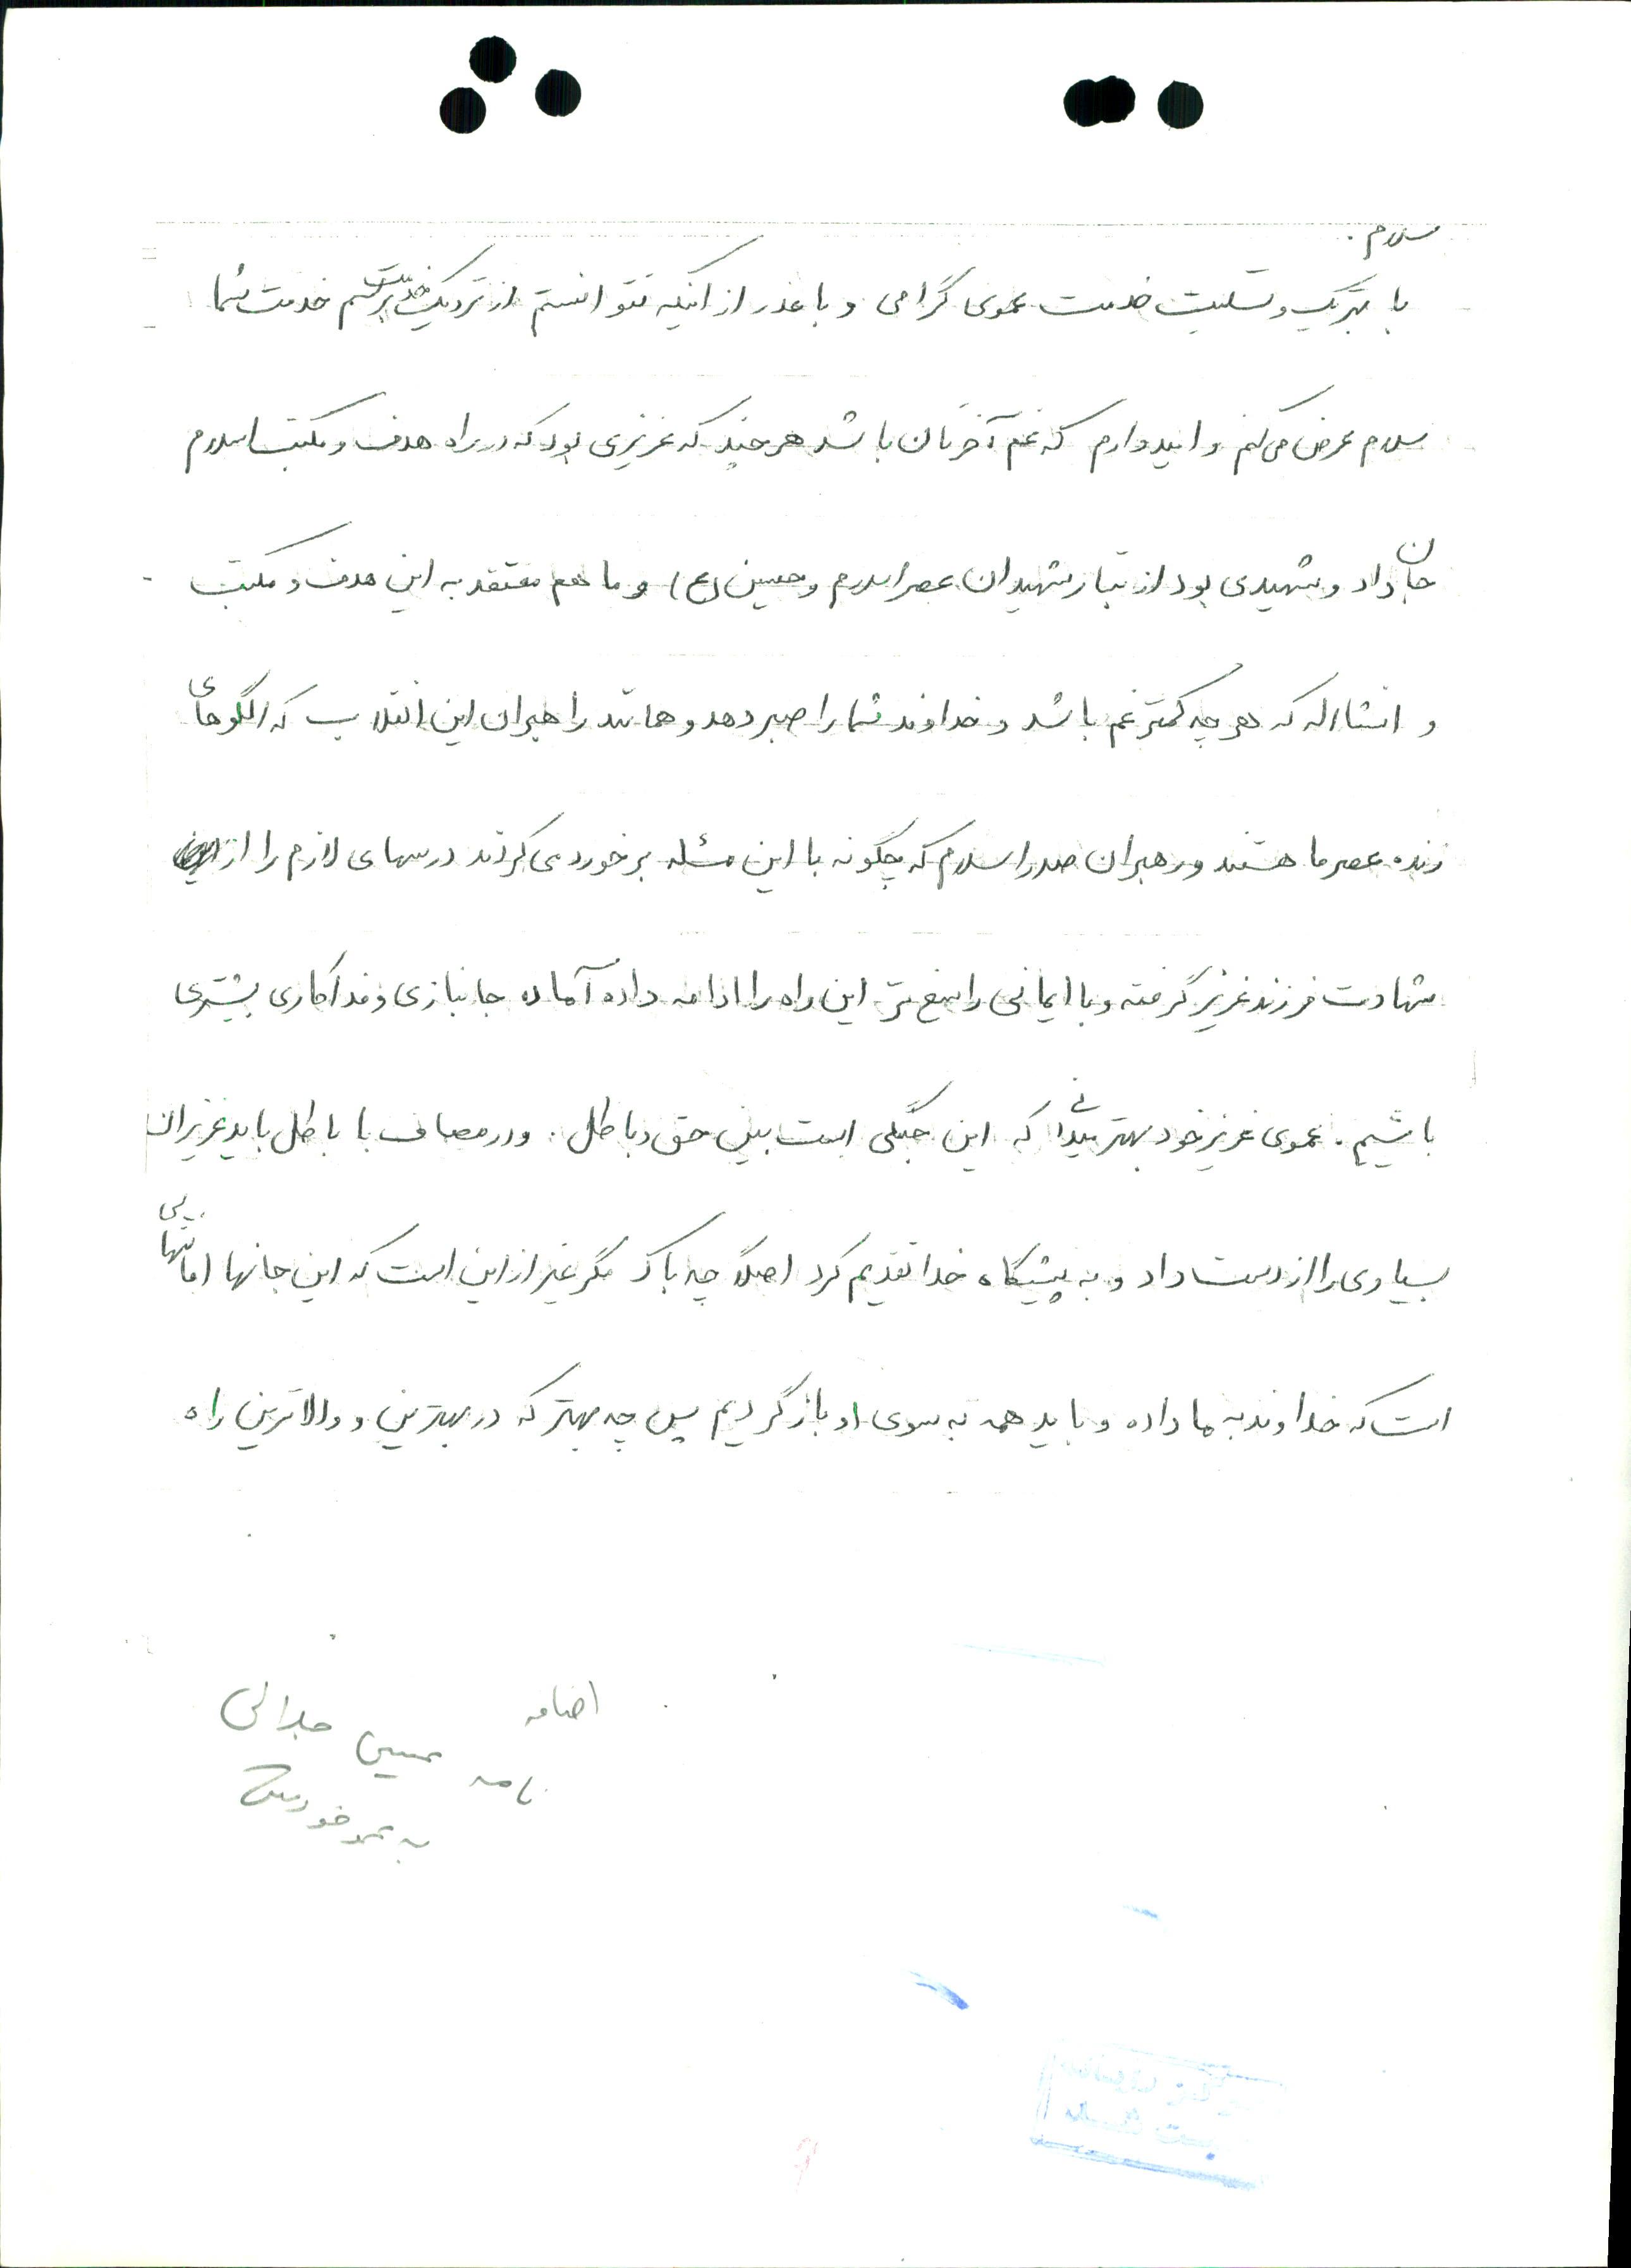 سلام .
با تبریک و تسلیت خدمت عموی گرامی و با عذر از اینکه نتوانستم از نزدیک خدمت برسم خدمت شما
سلام عرض می‌کنم و امیدوارم که غم آخرتان باشد هر چند که عزیزی بود که در راه هدف و مکتب اسلام
جان داد و شهیدی بود از تبار شهیدان عصر اسلام و حسین (ع) و ما هم معتقد به این هدف و مکتب
و انشااله که هر چه کمتر غم باشد و خداوند شما را صبر دهد و همانند راهبران این انقلاب که الگوهای
زنده عصر ما هستند و رهبران صدر اسلام که چگونه با این مسئله برخورد می کردند درسهای لازم را از این
شهادت فرزند عزیز گرفته و با ایمانی راسخ تر این راه را ادامه داده آماده جانبازی و فداکاری بیشتری
باشیم . عموی عزیز خود بهتر میدانی که این جنگی است بین حق و باطل . و در مصاف با باطل باید عزیزان
بسیاری را از دست داد و به پیشگاه خدا تقدیم کرد اصلاً چه باک مگر غیر از این است که این جانها امانتهایی
است که خداوند به ما داده و باید همه به سوی او بازگردیم پس چه بهتر که در بهترین و والاترین راه
اضافه
نامه حسین جلالی
به عمو خودش